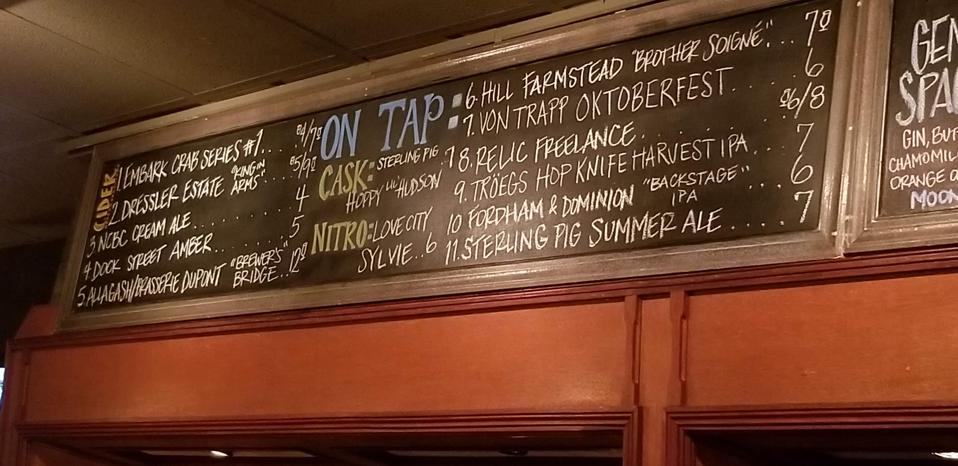 ON TAP:
CIDER:
1 EMBARK CRAB SERIES #1...
2 DRESSLER ESTATE "KING IN ARMS"
3 NCBC CREAM ALE......... 4
4 DOCK STREET AMBER........ 5
5. ALLAGASH/BRASSERIE DUPONT "BREWERS' BRIDGE"..12
CASK: STERLING PIG
HOPPY LIL' HUDSON 7
NITRO: LOVE CITY
SYLVIE..6
6. HILL FARMSTEAD "BROTHER SOIGNÉ"... 7
7. VON TRAPP OKTOBERFEST... 6
8. RELIC FREELANCE........ 6/8
9. TRÖEGS HOP KNIFE HARVEST IPA... 7
10 FORDHAM & DOMINION "BACKSTAGE" IPA ... 6
11. STERLING PIG SUMMER ALE ... 7
GEN
SPA
GIN, BU
CHAMOMIL
ORANGE
MOON